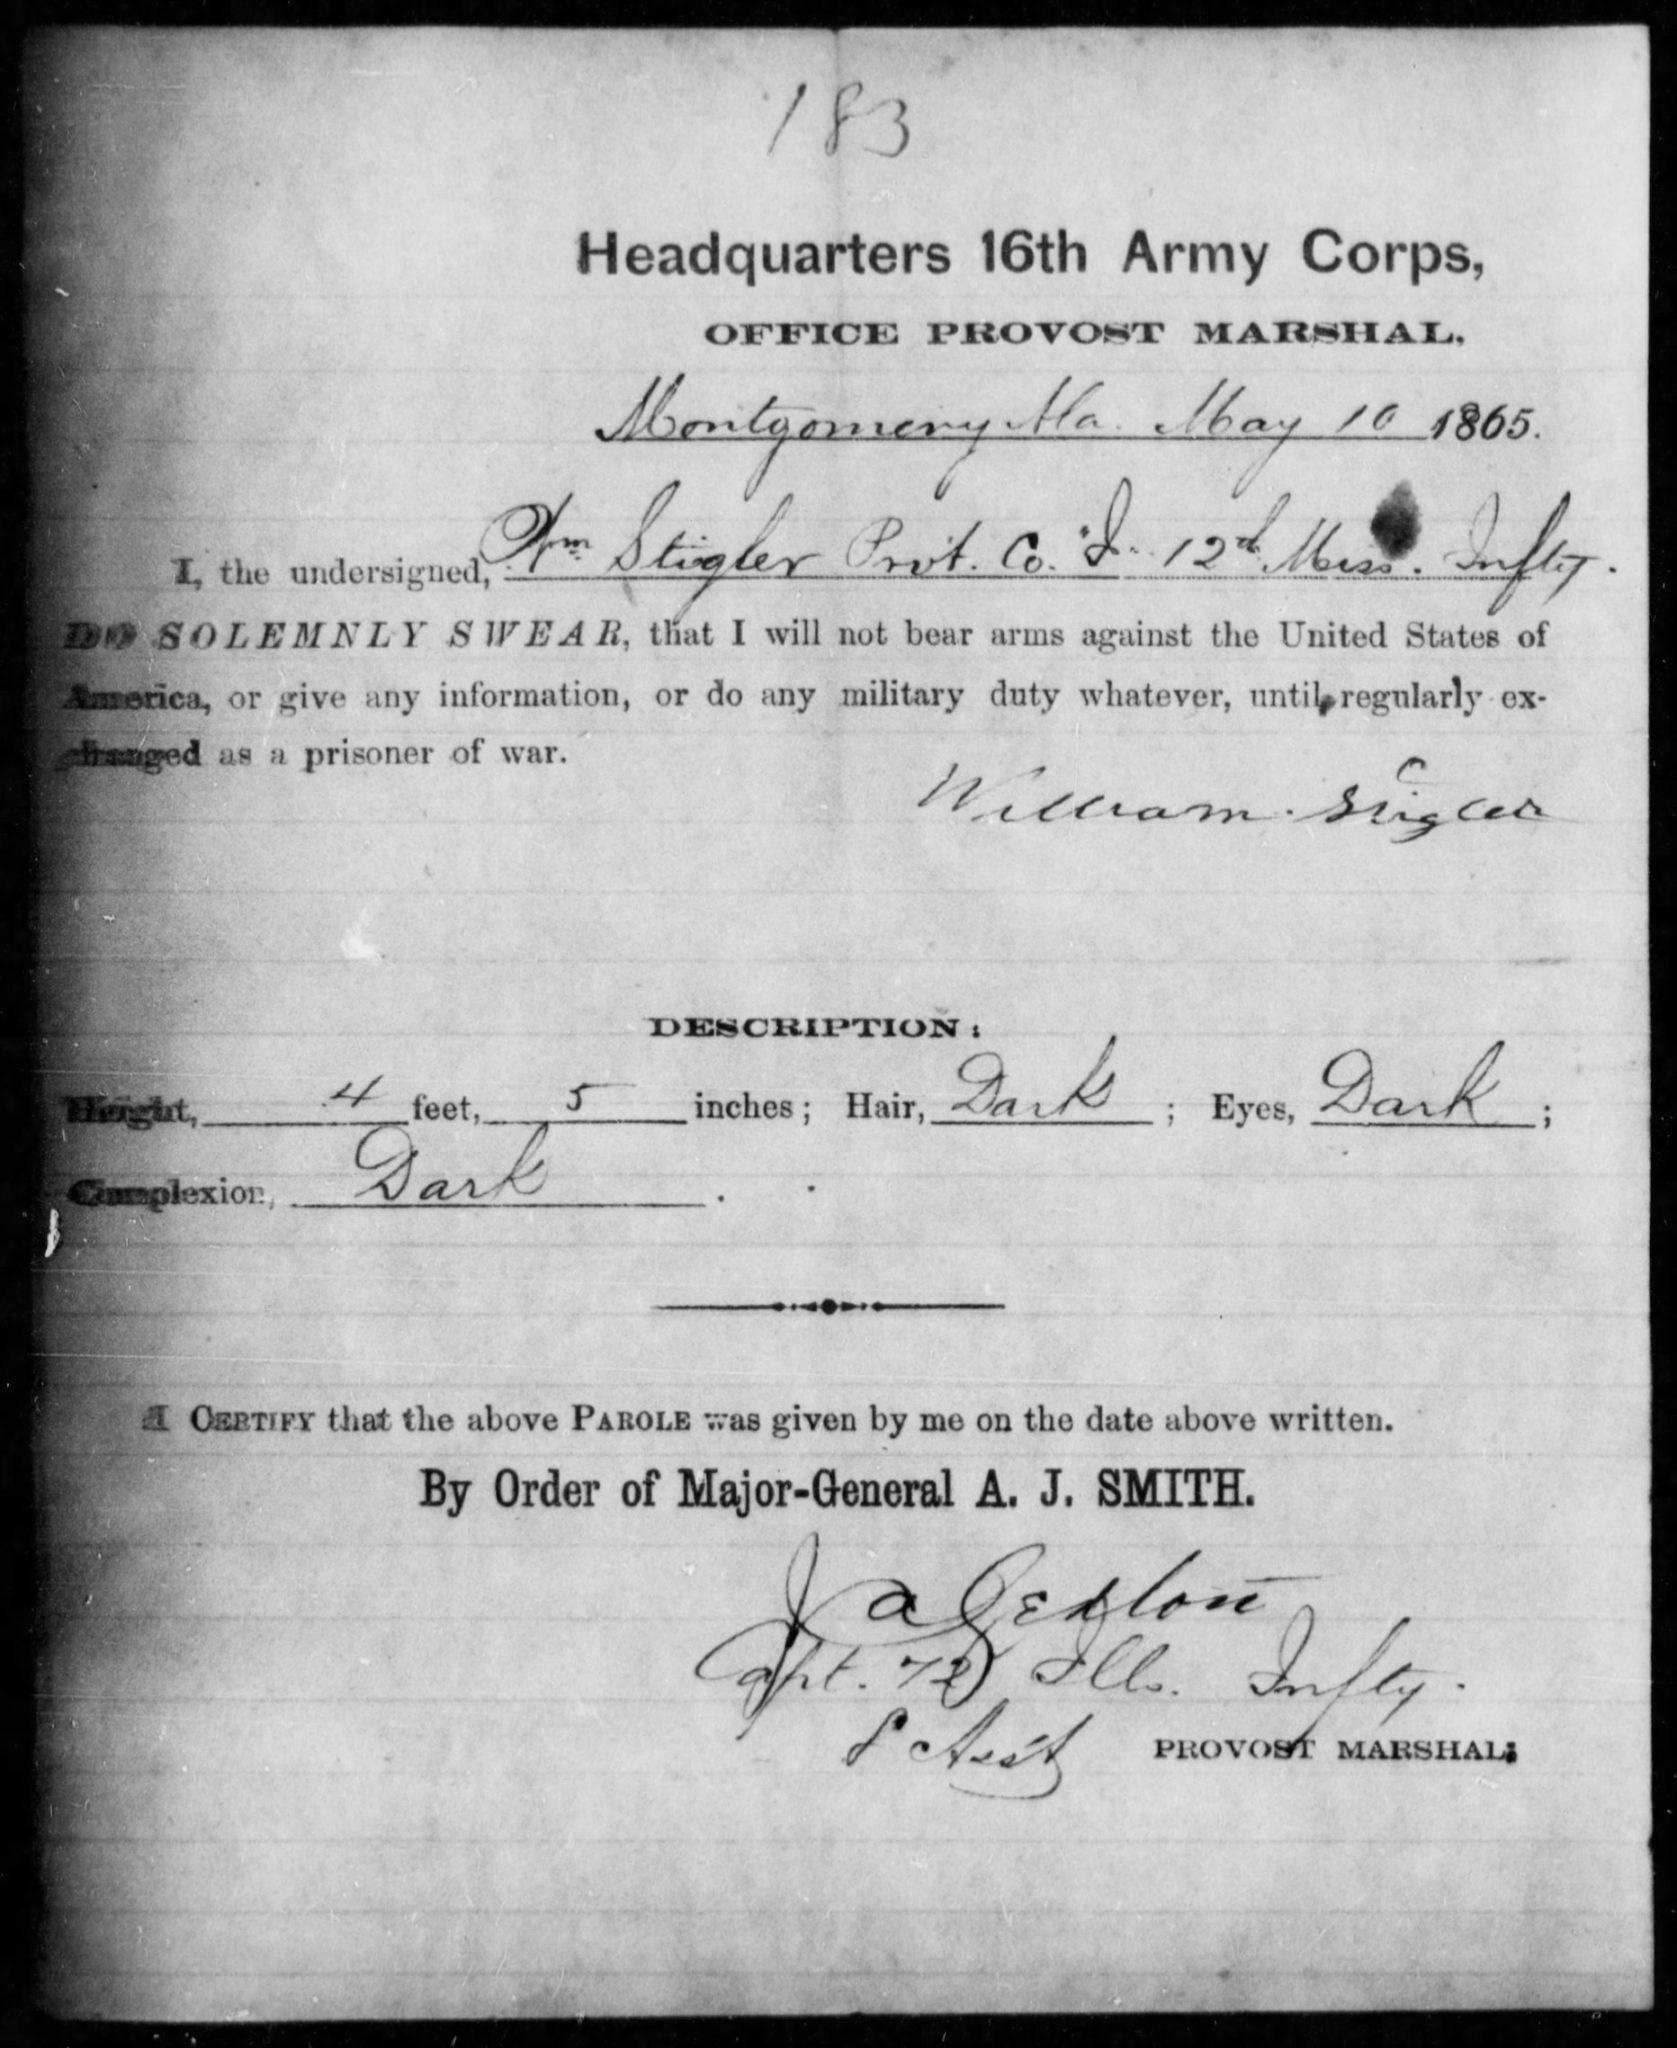 183
Headquarters 16th Army Corps,
OFFICE PROVOST MARSHAL.
Montgomery Ala. May 10 1865.
I, the undersigned, Wm Stigler Prvt. Co. "I" 12d Miss. Infty.
DO SOLEMNLY SWEAR, that I will not bear arms against the United States of
America, or give any information, or do any military duty whatever, until regularly ex-
changed as a prisoner of war.
William Stigler
DESCRIPTION:
Height, 4 feet, 5 inches; Hair, Dark; Eyes, Dark;
Complexion, Dark.
I CERTIFY that the above PAROLE was given by me on the date above written.
By Order of Major-General A. J. SMITH.
J A Sexton
Capt. 72 Ills. Infty.
& Asst PROVOST MARSHAL.